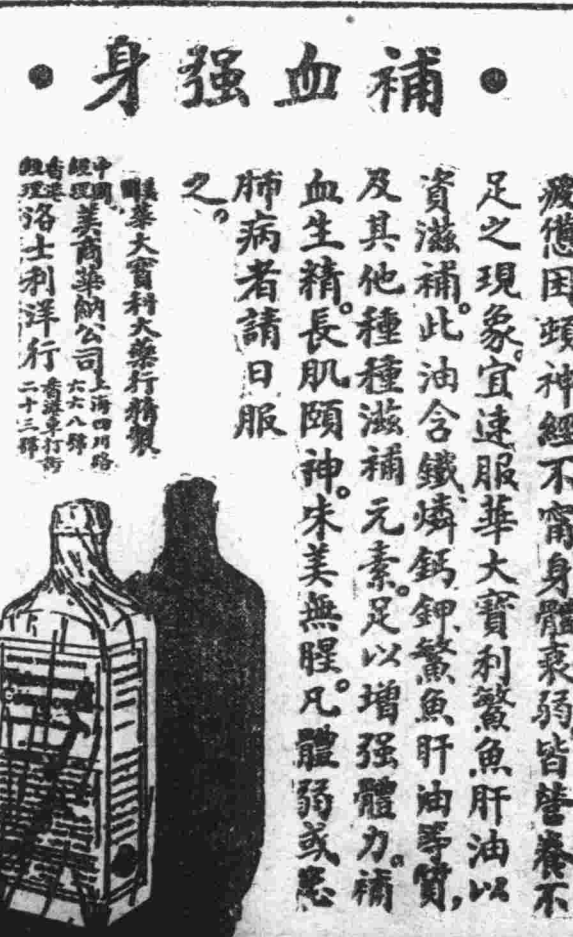 補血强身
疲憊困頓神經不甯身體衰弱皆營養不
足之現象。宜速服華大寶利鱉魚肝油以
資滋補。此油含鐵燐鈣鉀鱉魚肝油等質,
及其他種種滋補元素。足以增强體力。補
血生精。長肌頤神。味美無腥。凡體弱或患
肺病者請日服
之。
美國華大寶科大藥行精製
中國經理美商華納公司上海四川路六六八號
香港經理洛士利洋行香港車打街二十三號